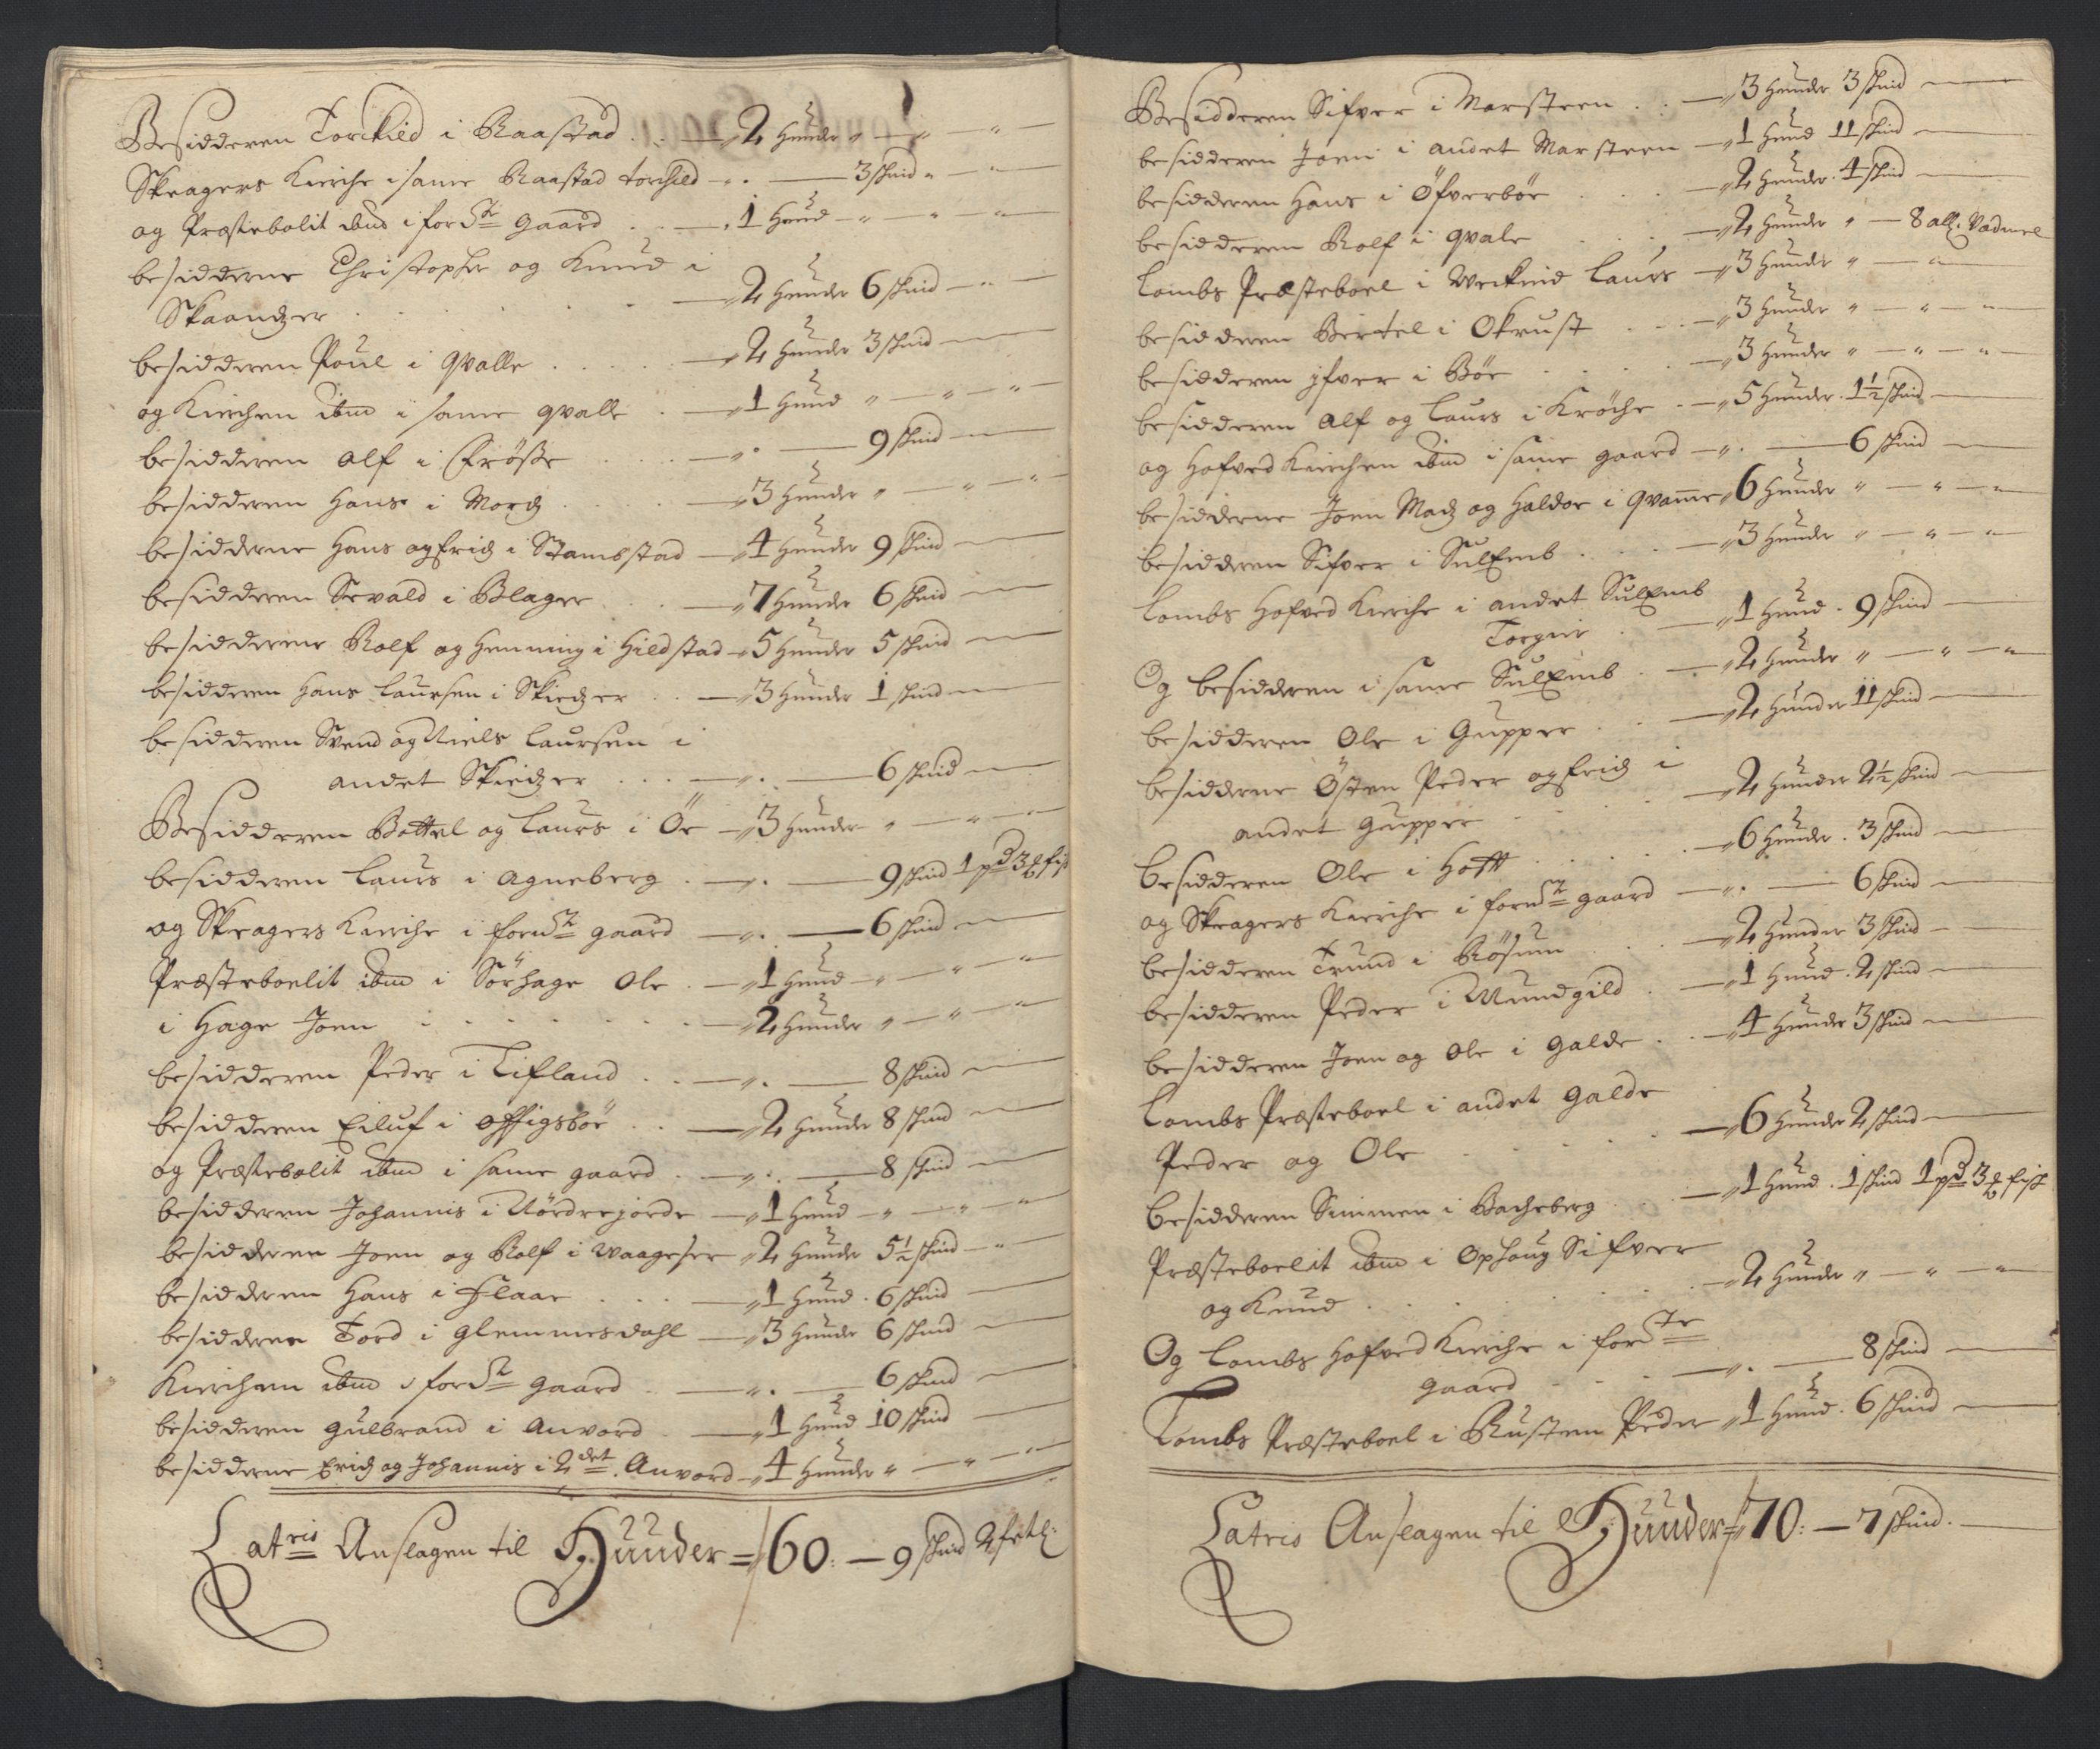 Besidderen Torckild i Raastad . . — 2 Hunder " — " — "
Skeagers Kierche i same Raastad torchild — . — 3 skind " — "
og Præstebolit ibm i fordte gaard . . — 1 Hund — " — " — "
besidderne Christopher og Knud i
Skaandzer . . . — 2 Hunder 6 skind — " —
besidderen Poul i Qvalle . . . . — 2 Hunder 3 skind —
og Kirchen ibm i same qvalle . — 1 Hund " — " — "
besidderen Alf i Frøsse . . . — " . — 9 skind —
besidderen Hans i Mordz . . . — 3 Hunder " — " — "
besidderne Hans og Eridz i Stambstad — 4 Hunder 9 skind —
besidderen Sevald i Blager . . — 7 Hunder 6 skind —
besidderne Rolf og Henning i Hildstad — 5 Hunder 5 skind —
besidderen Hans Laursen i Skiedzer . . — 3 Hunder 1 skind —
besidderen Svend og Niels Laursen i
andet Skiedzer . . . — " . — 6 skind —
Besidderen Bottel og Laurs i Öe — 3 Hunder " — " — "
besidderen Laurs i Agneberg . — " . — 9 skind 1 pd 3 fisk
og Skeagers Kierche i fornte gaard — " . — 6 skind —
Præsteboelit ibm i Sörhage Ole . — 1 Hund — " — " — "
i Hage Joen . . . . . — 2 Hunder " — " — "
besidderen Peder i Tifland . . — " . — 8 skind —
besidderen Eiluf i Offigsböe . . — 2 Hunder 8 skind —
og Præstebolit ibm i same gaard . — " . — 8 skind —
besidderen Johannis i Nördrejorde — 1 Hund — " — " — "
besidderne Joen og Rolf i Waageser " 2 Hunder 5½ skind — "
besidderen Hans i Flaae . . . — 1 Hund . 6 skind —
besidderen Tord i Glemmesdahl — 3 Hunder 6 skind —
Kierchen ibm i fordte gaard . — " . — 6 skind —
besidderen Gulbrand i Anvord . — 1 Hund 10 skind —
besidderne Eridz og Johannis i 2det Anvord — 4 Hunder " — " — "
Latris Anslagen til Hunder = 60 : — 9 skind
Besidderen Sifver i Marsteen . . — 3 Hunder 3 skind —
besidderen Joen i andet Marsteen — 1 Hund 11 skind —
besidderen Hans i Öfverböe . . . — 2 Hunder . 4 skind —
besidderen Rolf i qvale . . . — 2 Hunder " — 8 all. Vadmel
Lombs Præsteboel i Weckind Laurs — 3 Hunder " — "
besidderen Bertel i Okrust . . — 3 Hunder " — " — "
besidderen Ifver i Böe . . . . — 3 Hunder " — " — "
besidderen Alf og Laurs i Kröche . — 5 Hunder . 1½ skind —
og Hofved Kierchen ibm i same gaard — " . — 6 skind —
besidderne Joen Madz og Haldor i Qvamme " 6 Hunder " — " — "
besidderen Sifver i Sulemb . . . — 3 Hunder " — " — "
Lombs Hofved Kierche i andet Sulemb
Torgier . — 1 Hund . 9 skind —
Og besidderen i same Sulemb . — 2 Hunder " — " — "
besidderen Ole i Gupper . . — 2 Hunder 11 skind —
besidderne Östen Peder og Eridz i
andet Gupper . . . — 2 Hunder 2½ skind —
besidderen Ole i Hofft . . . . — 6 Hunder . 3 skind —
og Skeagers Kierche i fornte gaard — " . — 6 skind —
besidderen Trund i Rösum . . . — 2 Hunder 3 skind —
besidderen Peder i Mundgild . — 1 Hund . 2 skind —
besidderen Joen og Ole i Galde . . — 4 Hunder 3 skind —
Lombs Præsteboel i andet Galde
Peder og Ole . . . . — 6 Hunder 2 skind —
besidderen Simmen i Bacheberg . — 1 Hund . 1 skind 1 pd 3 fisk
Præsteboelit ibm i Ophoug Sifver
og Knud . . . . . — 2 Hunder " — " — "
Og Lombs Hofved Kierche i fordte
gaard . . . — " . — 8 skind —
Lombs Præsteboel i Rusten Peder " 1 Hund . 6 skind —
Latris Anslagen til Hunder = 70 : — 7 skind . —